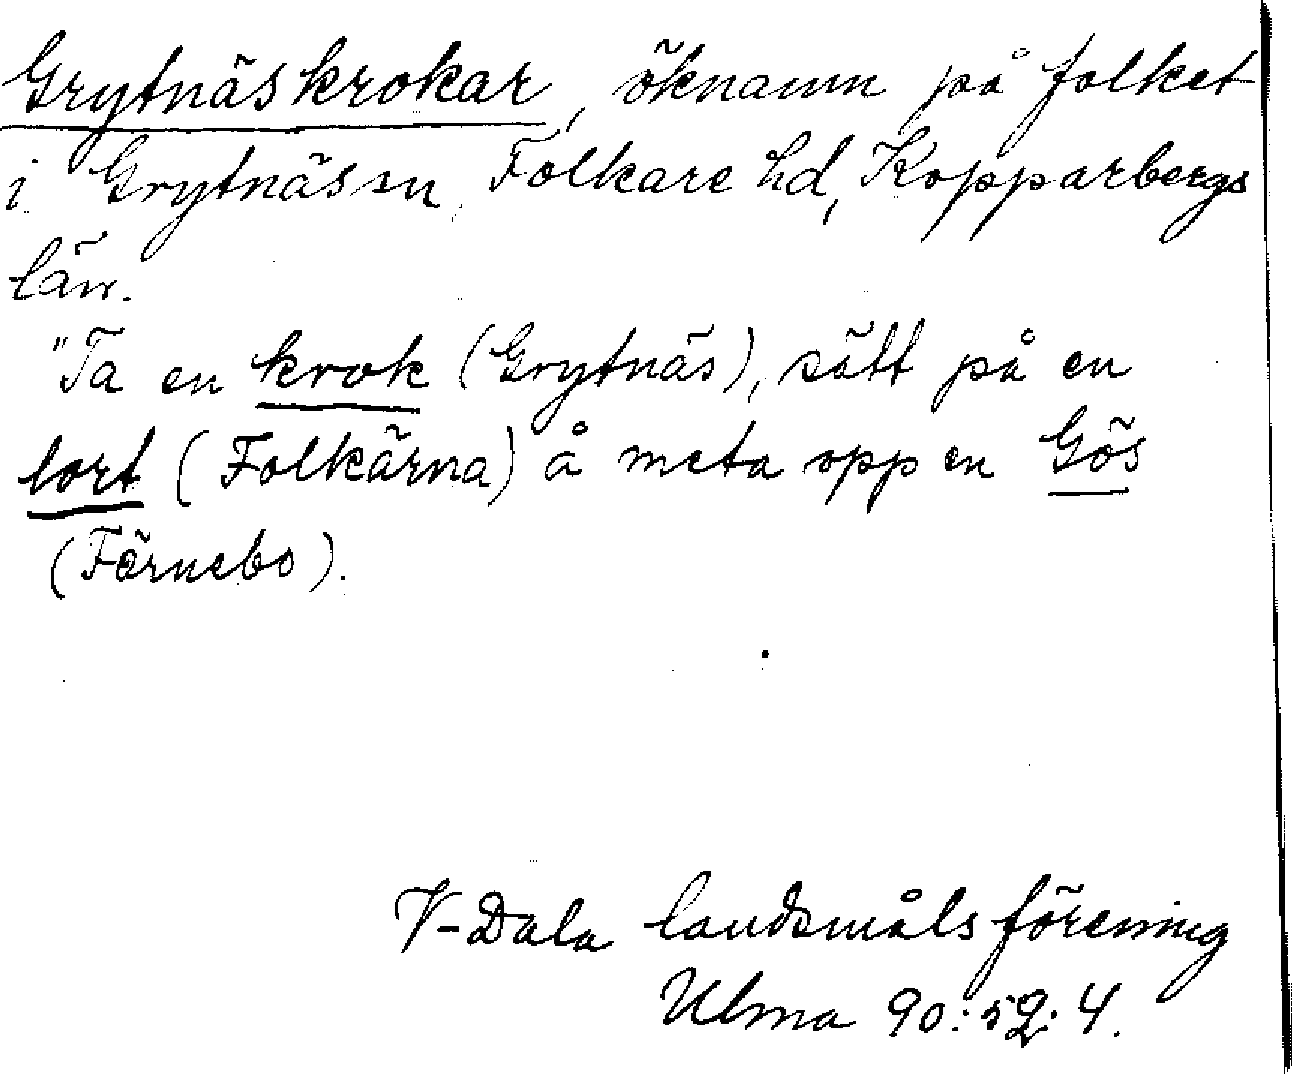 Grytnäskrokar, öknamn på folket
i Grytnäs sn, Folkare hd, Kopparbergs
län.
"Ta en krok (Grytnäs), sätt på en
lort (Folkärna) å meta opp en Gös
(Färnebo).
V-Dala landsmålsförening
Ulma 90:52:4.